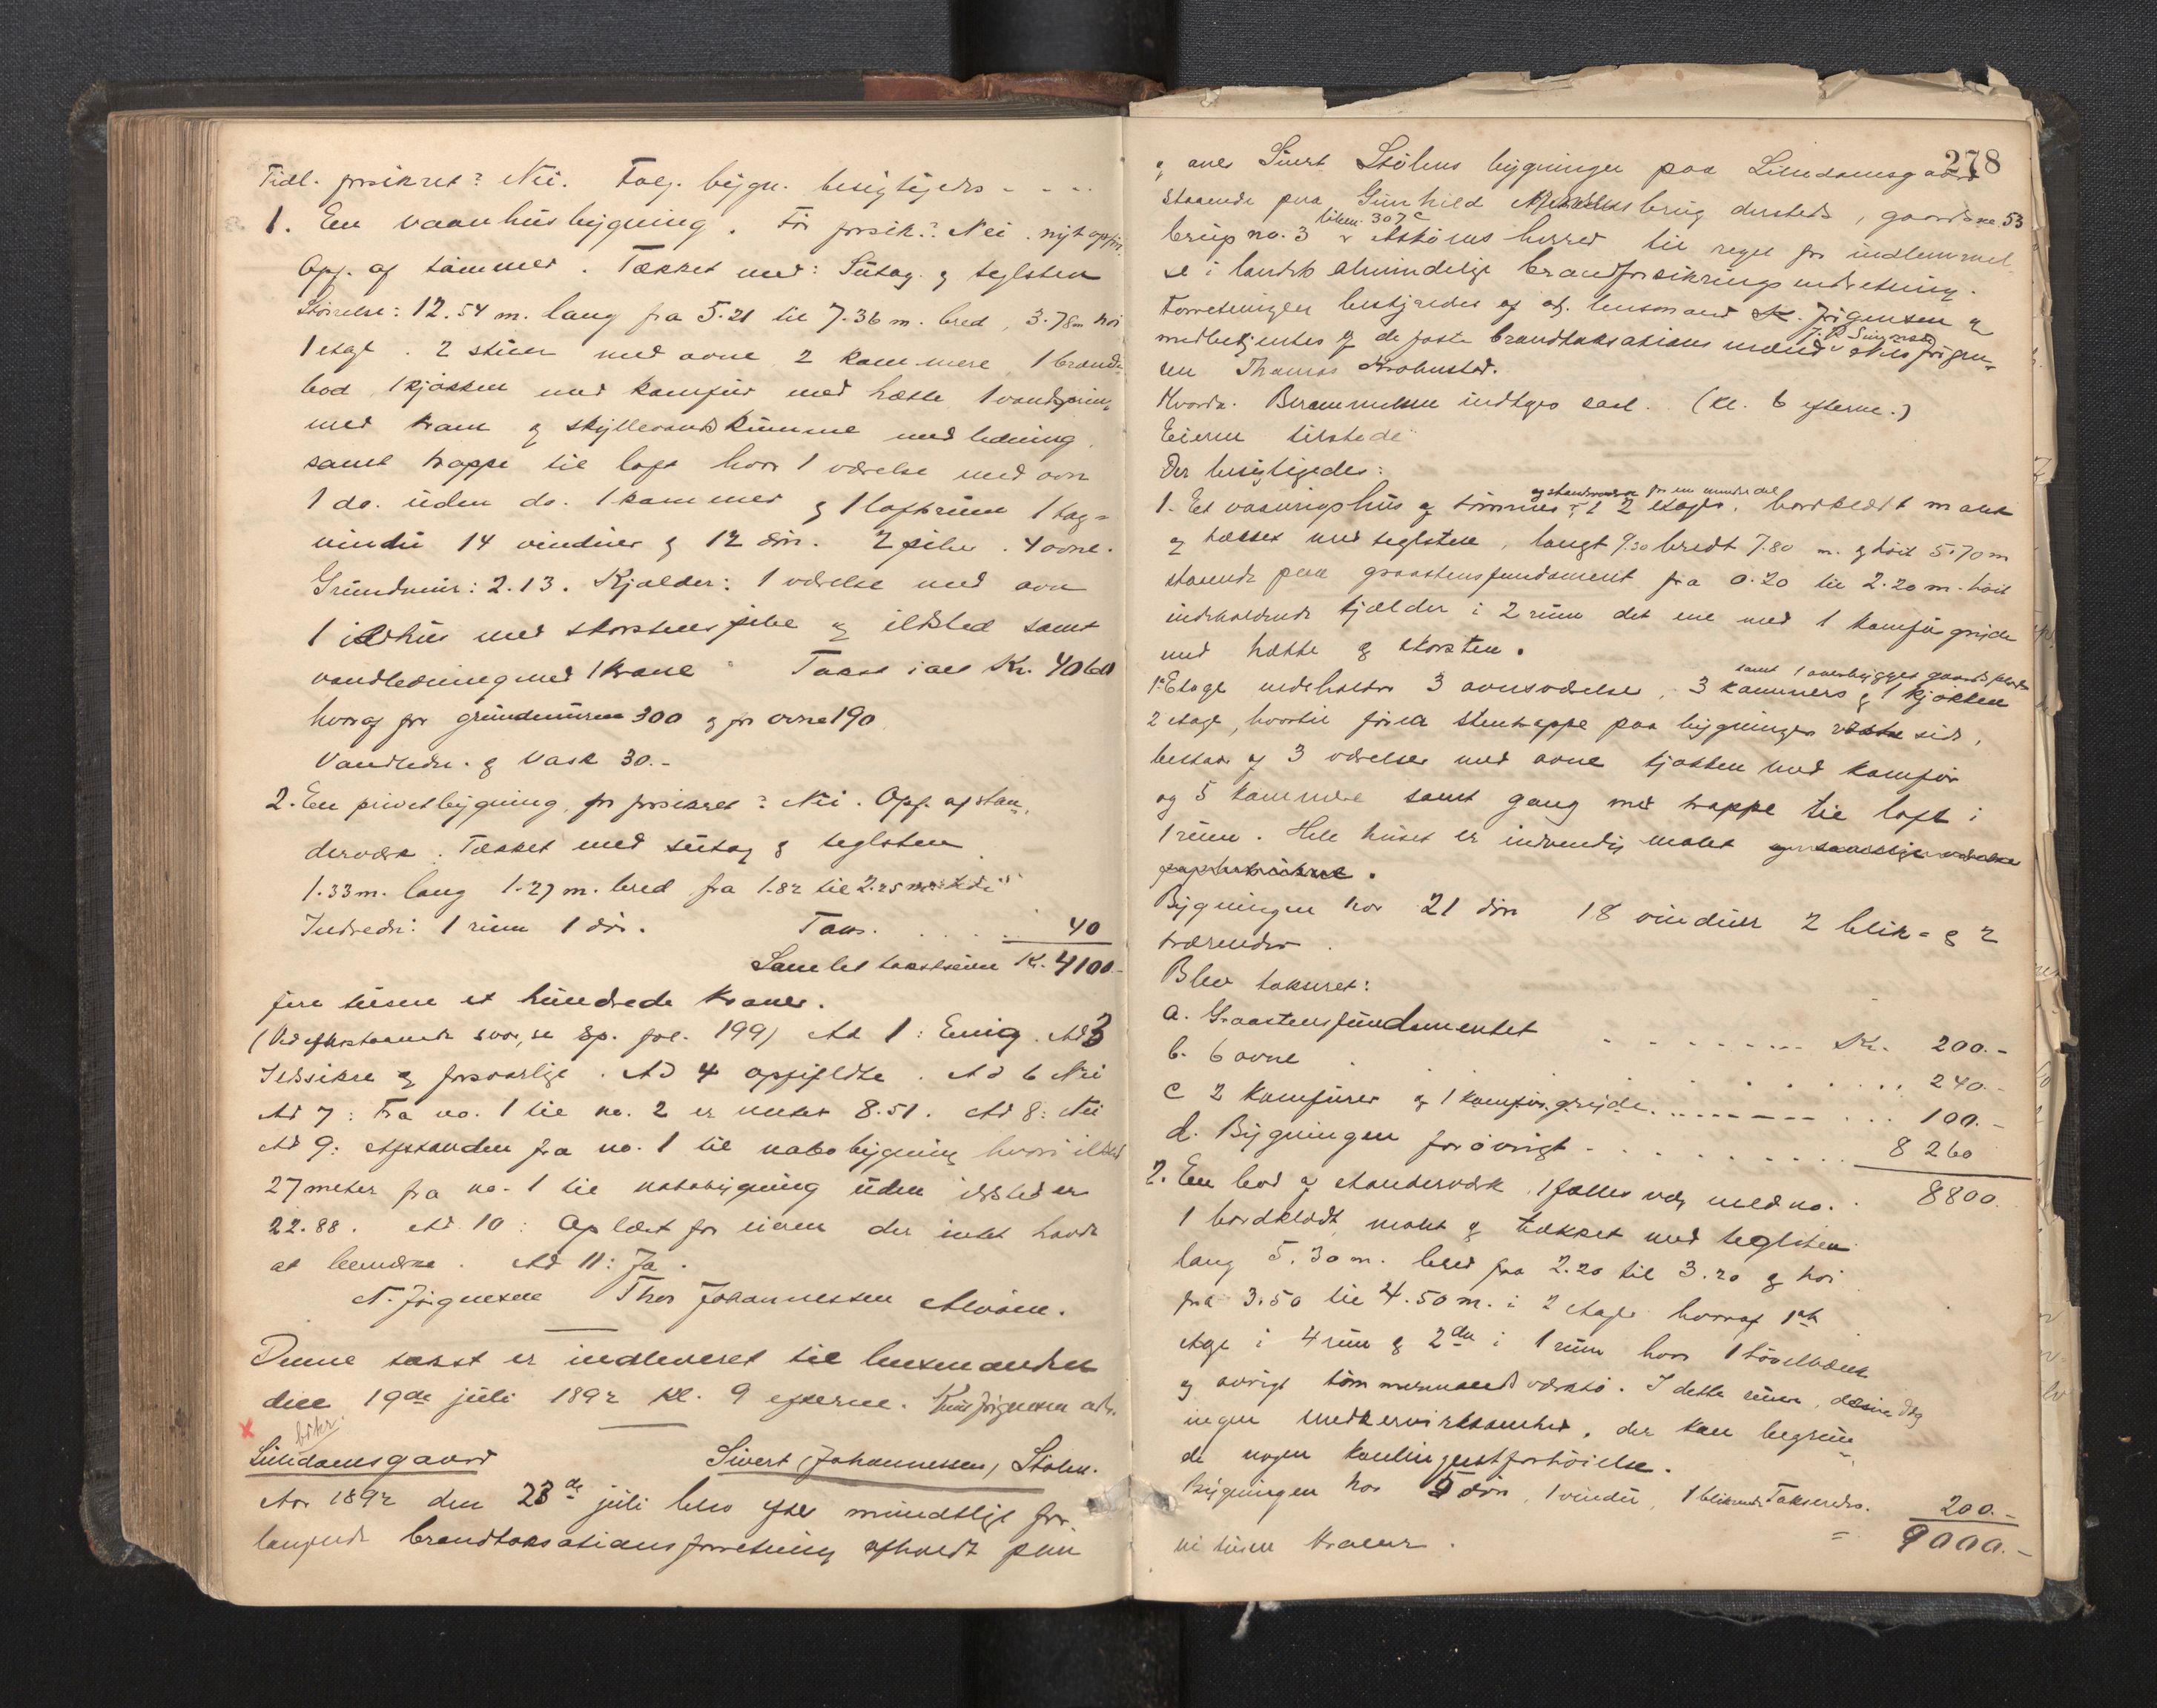 Tidl. forsikret? Nei. Følg. bygn. besigtigedes - - - -
1. En vaanhusbygning. Før forsik.? Nei. nyt opfør.
Opf. af tømmer. Tækket med: Sutag. og teglsten
Størrelse: 12.54 m. lang fra 5.21 til 7.36 m. bred, 3.78m høi
1 etage. 2 stuer med ovne 2 kammere, 1 brende-
bod, 1 kjøkken med komfur med hætte 1 vandspring
med kran og skyllevandskumme med ledning.
samt trappe til loft hvor 1 værelse med ovn
1 do. uden do. 1 kammer og 1 loftsrum 1 tag-
vindu 14 vinduer og 12 dør. 2 piber. 4 ovne.
Grundmur: 2.13. Kjælder: 1 værelse med ovn
1 ildhus med skorstenspibe og ildsted samt
vandledning med 1 krane Takst i alt Kr. 4060
hvoraf for grundmuren 300 og for ovne 190
Vandledn. og Vask 30.-
2. En privetbygning, før forsikret? Nei. Opf. af stan-
derværk. Tækket med sutag og teglsten
1.33 m. lang 1.27 m. bred fra 1.82 til 2.25 m
Indredn: 1 rum 1 dør. Taks. . . . . 40
Samlet takstsum Kr. 4100.-
fire tusen et hundrede kroner.
(Vedefterstaaende svar, se sp. fol. 199) Ad 1: Enig. Ad 3
Ildsikre og forsvarlige. Ad 4 opfyldte. Ad 6 Nei
Ad 7: Fra no. 1 til no. 2 er meter 8.51. Ad 8: Nei
Ad 9: Afstanden fra no. 1 til nabobygning hvori ildsted
27 meter fra no. 1 til nabobygning uden ildsted er
22.88. Ad 10: Oplæst for eieren der intet havde
at bemærke. Ad 11: Ja.
N. Jørgensen Thor Johannessen Alvøen.
Denne takst er indleveret til lensmanden
den 19de juli 1892 kl. 9 efterm. Jørgensen
Lindamsgaard Sivert (Johannessen) Stølen.
Aar 1892 den 23de juli blev efter mundtlige for-
langende brandtaksationsforretning afholdt paa
278
og over Sivert Stølens bygninger paa Lindamsgaard
staaende paa Gunhild brug dersteds, gaards no. 53
løbenr. 307 c
brug no. 3 Askøens herred til regel for indlemmel
se i landets almindelige brandforsikringsindretning.
Forretningen bestyredes af cst. lensmand K. Jørgensen og
medbetjentes af de faste brandtaksationsmænd Nils Jørgen-
sen Thomas Krohnsted.
Hvorda. Berammelsen indtoges saal. (Kl. 6 efterm.)
Eieren tilstede
Der besigtigedes:
og standerværk for en mindre del
1. Et vaaningshus af tømmer i 2 etager, bordklædt malt
og tækket med teglsten, langt 9.30 bredt 7.80 m. og høit 5.70 m
staaende paa graastensfundament fra 0.20 til 2.20 m. høit
indeholdende kjælder i 2 rum det ene med 1 komfurgryde
med hætte og skorsten.
samt 1 overbygget
1ste Etage indeholder 3 ovnsværelse, 3 kammers og 1 kjøkken
2 etage, hvortil fører stentrappe paa bygningens side,
bestaar af 3 værelser med ovne kjøkken med komfur
og 5 kammere samt gang med trappe til loft i
1 rum. Hele huset er indvendig malet
.
Bygningen har 21 dør 18 vinduer 2 blik- og 2
trærender.
Blev takseret:
a. Graastensfundamentet - - - - Kr. 200.-
b. 6 ovne . . . . . 240.-
c 2 komfurer og 1 komfurgryde. - - - - 100.-
d. Bygningen forøvrigt - . . . . 8260
8800.
2. En bod af standerværk, i fælles væg med no.
1 bordklædt, malt og tækket med teglsten
lang 5.30 m. bred fra 2.20 til 3.20 og høi
fra 3.50 til 4.50 m. i 2 etage hvoraf 1ste
etge i 4 rum og 2den i 1 rum hvor 1 høvelbænk
og øvrigt tømmermandsværktø. I dette rum, drives dog
ingen snedkervirksomhed, der kan begrun-
de nogen kontingentforhøielse.
Bygningen har 5 dør, 1 vindu, 1 blikrende Takseredes. 200.-
ni tusen kroner. = 9000.-